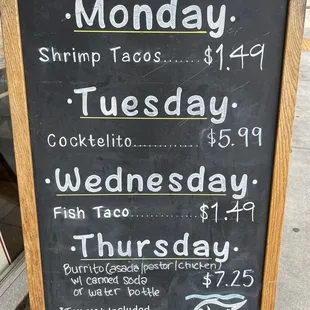 Monday
Shrimp Tacos....... $1.49
·Tuesday·
Cocktelito............. $5.99
·Wednesday·
Fish Taco............ $1.49
·Thursday·
Burrito (asada/pastor/chicken)
w/ canned soda
or water bottle
$7.25
included